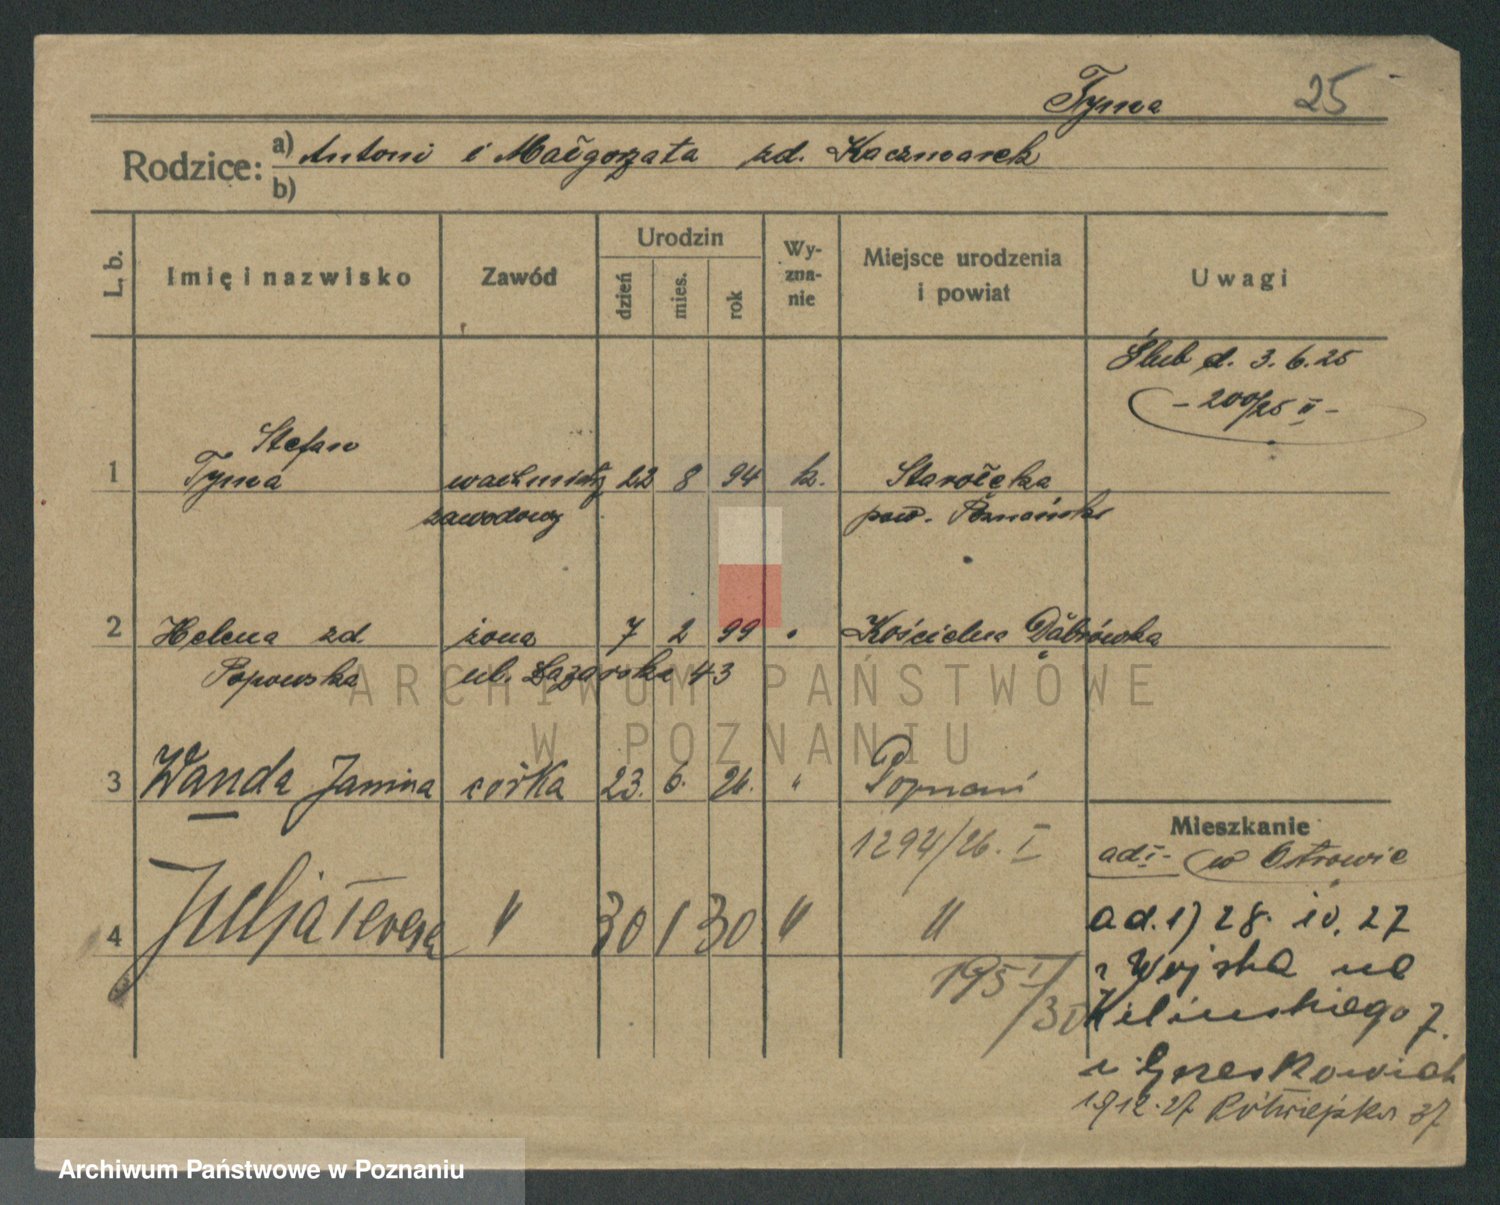 Tyma 25
Rodzice: a) Antoni i Małgorzata zd. Kaczmarek
b)
L. b. Imię i nazwisko Zawód Urodzin dzień mies. rok Wyznanie Miejsce urodzenia i powiat Uwagi
Ślub d. 3.6.25
- 200/25 II -
Stefan
1 Tyma wachmistrz 22 8 94 k. Starołęka
zawodowy pow. Poznański
2 Helena zd. żona 7 2 99 " Kościelna Dąbrówka
Popowska ul. Łazarska 43
3 Wanda Janina córka 23. 6. 26. " Poznań
1294/26. I
Mieszkanie
ad 1- w Ostrowie
4 Julja Teresa " 30 1 30 " "
ad. 1) 28. 10. 27
195 I/30
z Wojska na
Kilińskiego 7.
u Grześkowiak
19.12.27 Półwiejska 37
ARCHIWUM PAŃSTWOWE
W POZNANIU
Archiwum Państwowe w Poznaniu